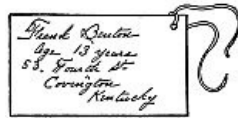 Frank Denton
Age 13 years
58. Fourth St
Covington
Kentucky